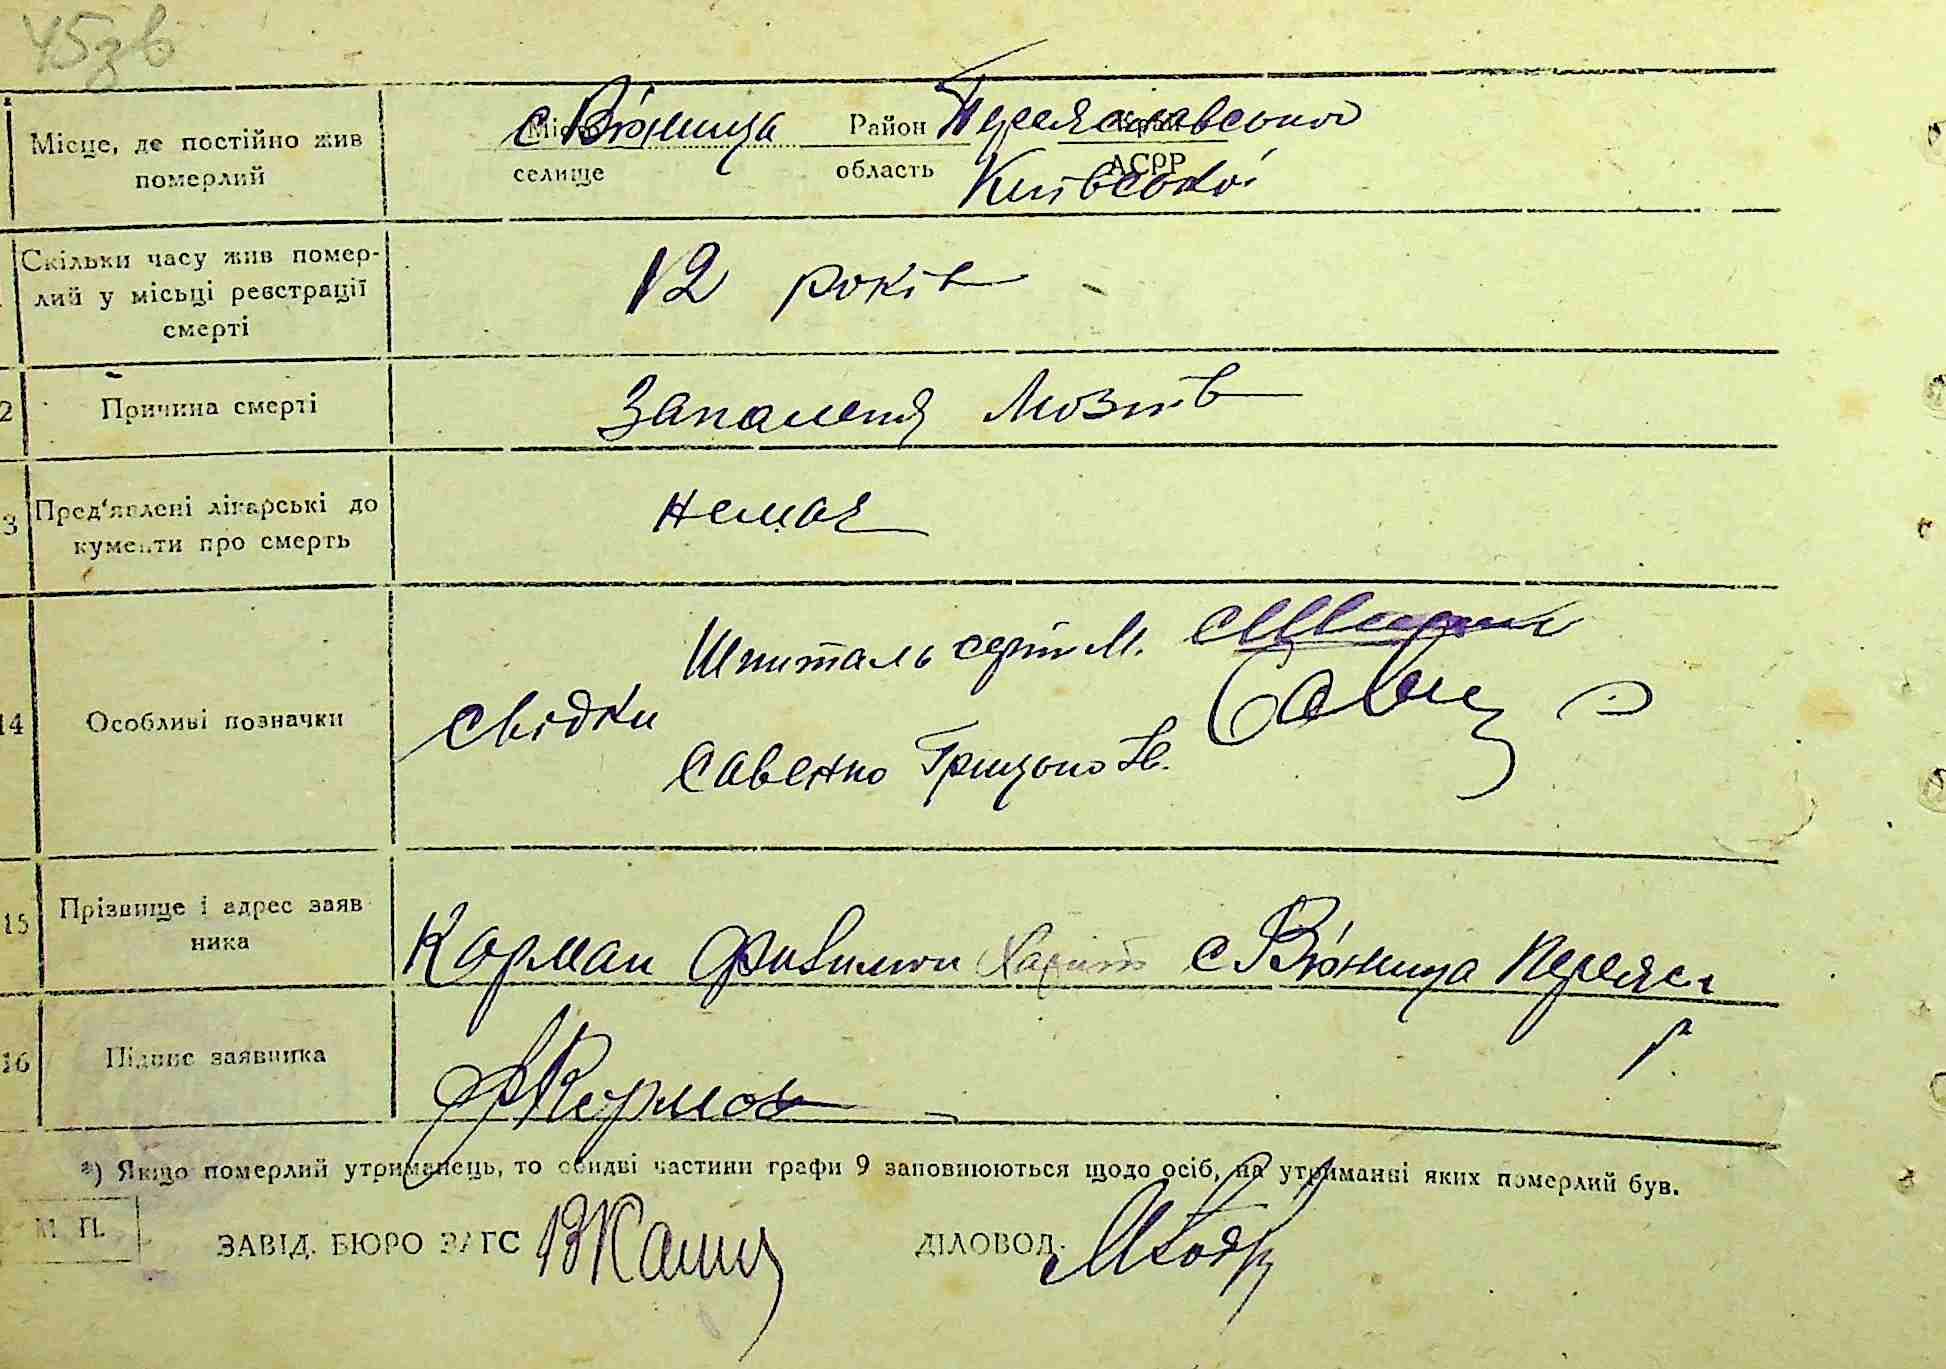 45зв
Місце, де постійно жив
померлий
с Вюнища Район Переяславської
селище область АСРР
Київської
Скільки часу жив помер-
лий у місьці реєстрації
смерті
12 років
2 Причина смерті
Запаленя Мозгів
3 Пред'явлені лікарські до
кументи про смерть
немає
14 Особливі позначки
Свідки
Шпиталь М.
Савенко Грицько
15 Прізвище і адрес заяв
ника
Корман Филимон с Вюнища Переясл
р.
16 Підпис заявника
*) Якщо померлий утриманець, то обидві частини графи 9 заповнюються щодо осіб, на утриманні яких померлий був.
М. П.
ЗАВІД. БЮРО ЗАГС
ДІЛОВОД.